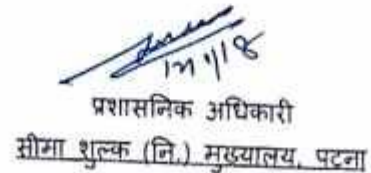 प्रशासनिक अधिकारी
सीमा शुल्क (नि.) मुख्यालय, पटना